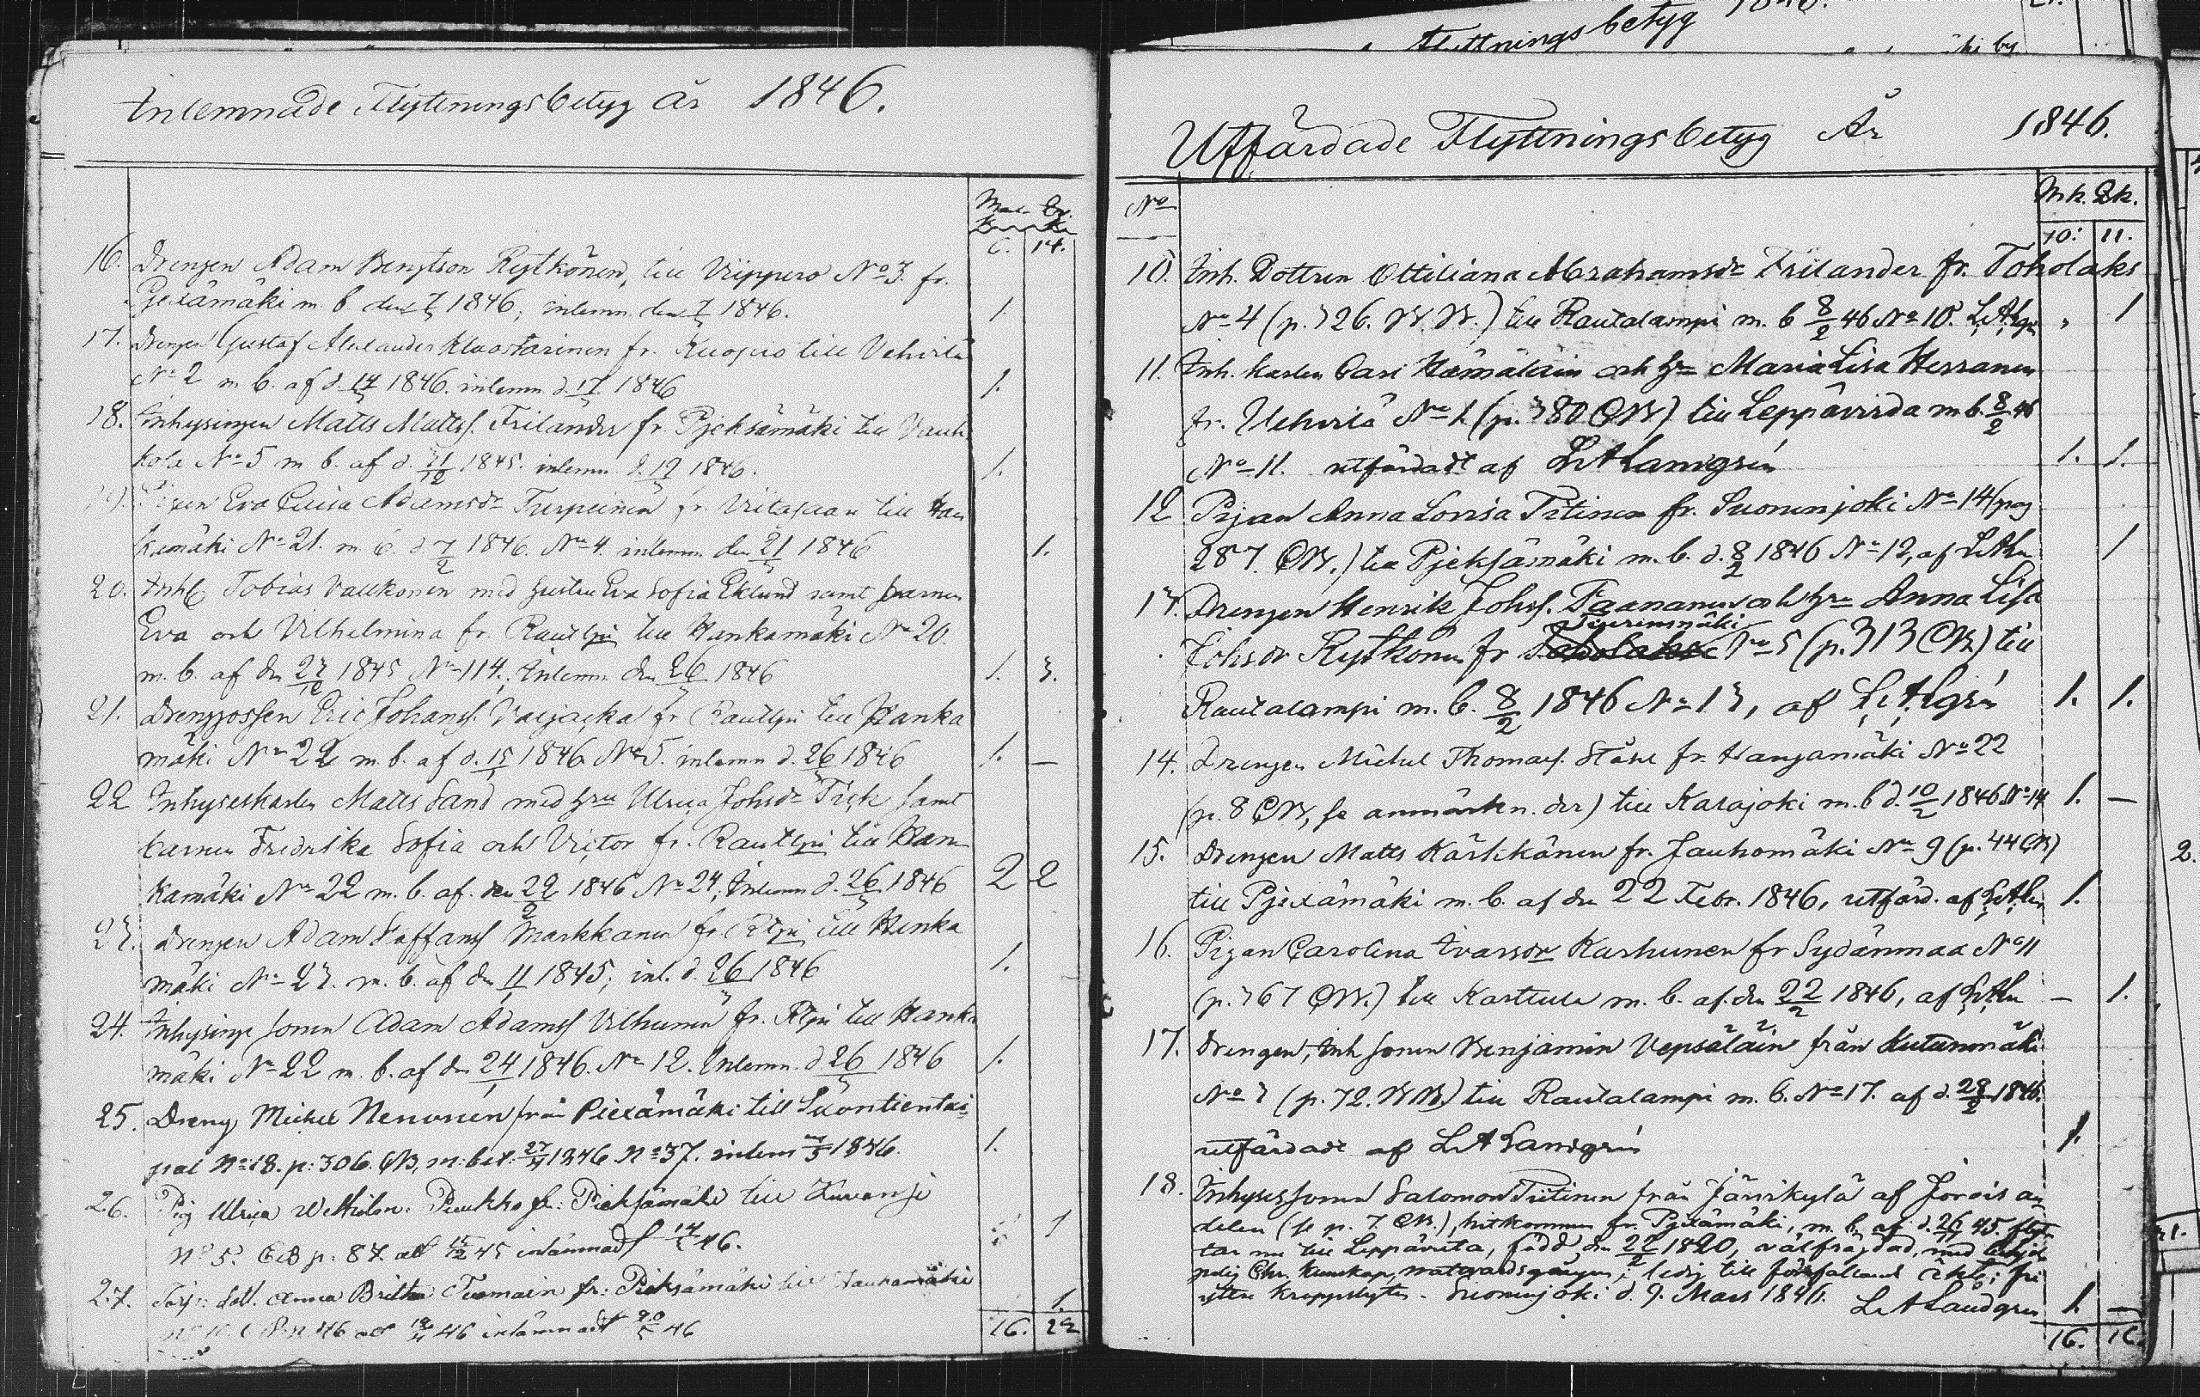 Inlemnade Flyttningsbetyg år 1846.
6. 14.
16. Drengen Adam Bengtson Rytkönen, till Vippero No 3. fr.
Pjexämäki m. b den 7/5 1846, inlemn. den 7/5 1846. 1
17. Drengen Gustaf Alexander Kluostarinen fr. Kuopio till Vehvilä
No 2 m b. af d. 1846. inlemn d. 17/5 1846 1.
18. Inhysingen Matts Mattss. Frilander fr Pjeksämäki till Vauh
kola No 5 m b. af d. 31/12 1845. inlemn. d. 19 1846. 1.
19. Pigan Eva Caisa Adamsdr Turpeinen fr. till Han
kamäki No 21. m. b. d 7/2 1846. No 4. inlemn. den 21/5 1846 1.
20. Inh Tobias Valkonen med hustru Eva Sofia Eklund samt barnen
Eva och Vilhelmina fr. Rautlpi till Hankamäki No 20.
m. b. af den 27/12 1845 No 114. Inlemn den 26/5 1846 1. 3.
21. Drengossen Eric Johanss. fr Rautlpi till Hanka
mäki No 22 m. b. af d. 15/1 1846 No 5. inlemn d. 26/5 1846 1. —
22 Inhyseskarlen Matts Sand med hru Ulrica Johsdr Fisk samt
barnen Fredrika Sofia och Victor fr. Rautlpi till Han
kamäki No 22 m. b. af. den 22/2 1846 No 24, Inlemn d. 26/5 1846 2 2
23. Drengen Adam Staffanss Markkanen fr Rtlpi till Hanka
mäki No 23. m. b. af den 11/1 1845; inl. d. 26/5 1846 1.
24. Inhysinge sonen Adam Adamss Vilhunen fr. Rtlpi till Hanka
mäki No 22 m. b. af den 24/1 1846. No 12. Inlemn. d 26/5 1846 1.
25. Dreng Mickel Nenonen från Piexämäki till Suontientai
pal No 18. p: 306. CB, m: bet: 27/4 1846 No 37. inlemn 1846. 1.
26. Pig Ulrica Wilhelm. Puukko fr: Pieksämäki till
No 5. CB p. 87. att 15/12 45 inlämnadt 14/5 46. 1
27. dott. Anna Britha Tiomain fr: Pieksämäki till Hankamäki
46 inlämnadt 20/5 46 1.
16. 22
Flyttningsbetyg
Utfärdade Flyttningsbetyg År 1846.
No Mk. Qk.
10: 11.
10. Inh. Dottren Ottiliana Abrahamsdr Frilander fr. Toholaks
No 4 (p. 326. W. B.) till Rautalampi m. b 8/2 46 No 10. LALgn 1
11. Inh. karlen Carl Hämäläin och hru Maria Lisa Herranen
fr. Vehvilä No 1 (p. 380 CB) till Leppävirda m b. 8/2 46
No 11. utfärdadt af LALandgrén 1. 1.
12 Pigan Anna Lovisa Titinen fr. Suonenjoki No 14 (pag
287. CB.) till Pjeksämäki m. b. d. 8/2 1846 No 12, af LALn 1
13. Drengen Henrik Johss. Taananen och hru Anna Lisa
Johsdr Rytkönen fr No 5 (p. 313 CB) till
Rautalampi m. b. 8/2 1846 No 13, af L.A.Lgrén 1. 1.
14. Drengen Michel Thomass. Ståhl fr. Hangamäki No 22
(p. 8 CB, se anmärkn. der) till Kalajoki m. b d. 10/2 1846 No 14 1. —
15. Drengen Matts Kärkkänen fr. Jauhomäki No 9 (p. 44 CB)
till Pjexämäki m. b. af den 22 Febr. 1846, utfärd. af LALn 1.
16. Pigan Carolina Ivarsdr Karhunen fr Sydänmaa No 11
(p. 367 CB.) till Karttula m. b. af. den 22/2 1846, af LALn — 1.
17. Drengen, Inh sonen Benjamin Vepsäläin från Kutunmäki
No 3 (p. 72. W B.) till Rautalampi m. b. No 17. af d. 28/2 1846.
utfärdadt af LALandgrén 1.
18. Inhyses sonen Salomon Tiitinen från Järvikylä af Jorois an
delen (se p. 7. CB.), hitkommen fr. Pjexämäki, m. b. af d. 26 45. flyt
tar nu till Leppävirta, född den 22/2 1820, välfräjdad, med
Chr. kunskap, nattvardsgången; ledig till äkta; fri
kroppslyten. Suonenjoki d. 9. Mars 1846. LALandgren 1. —
16. 16.